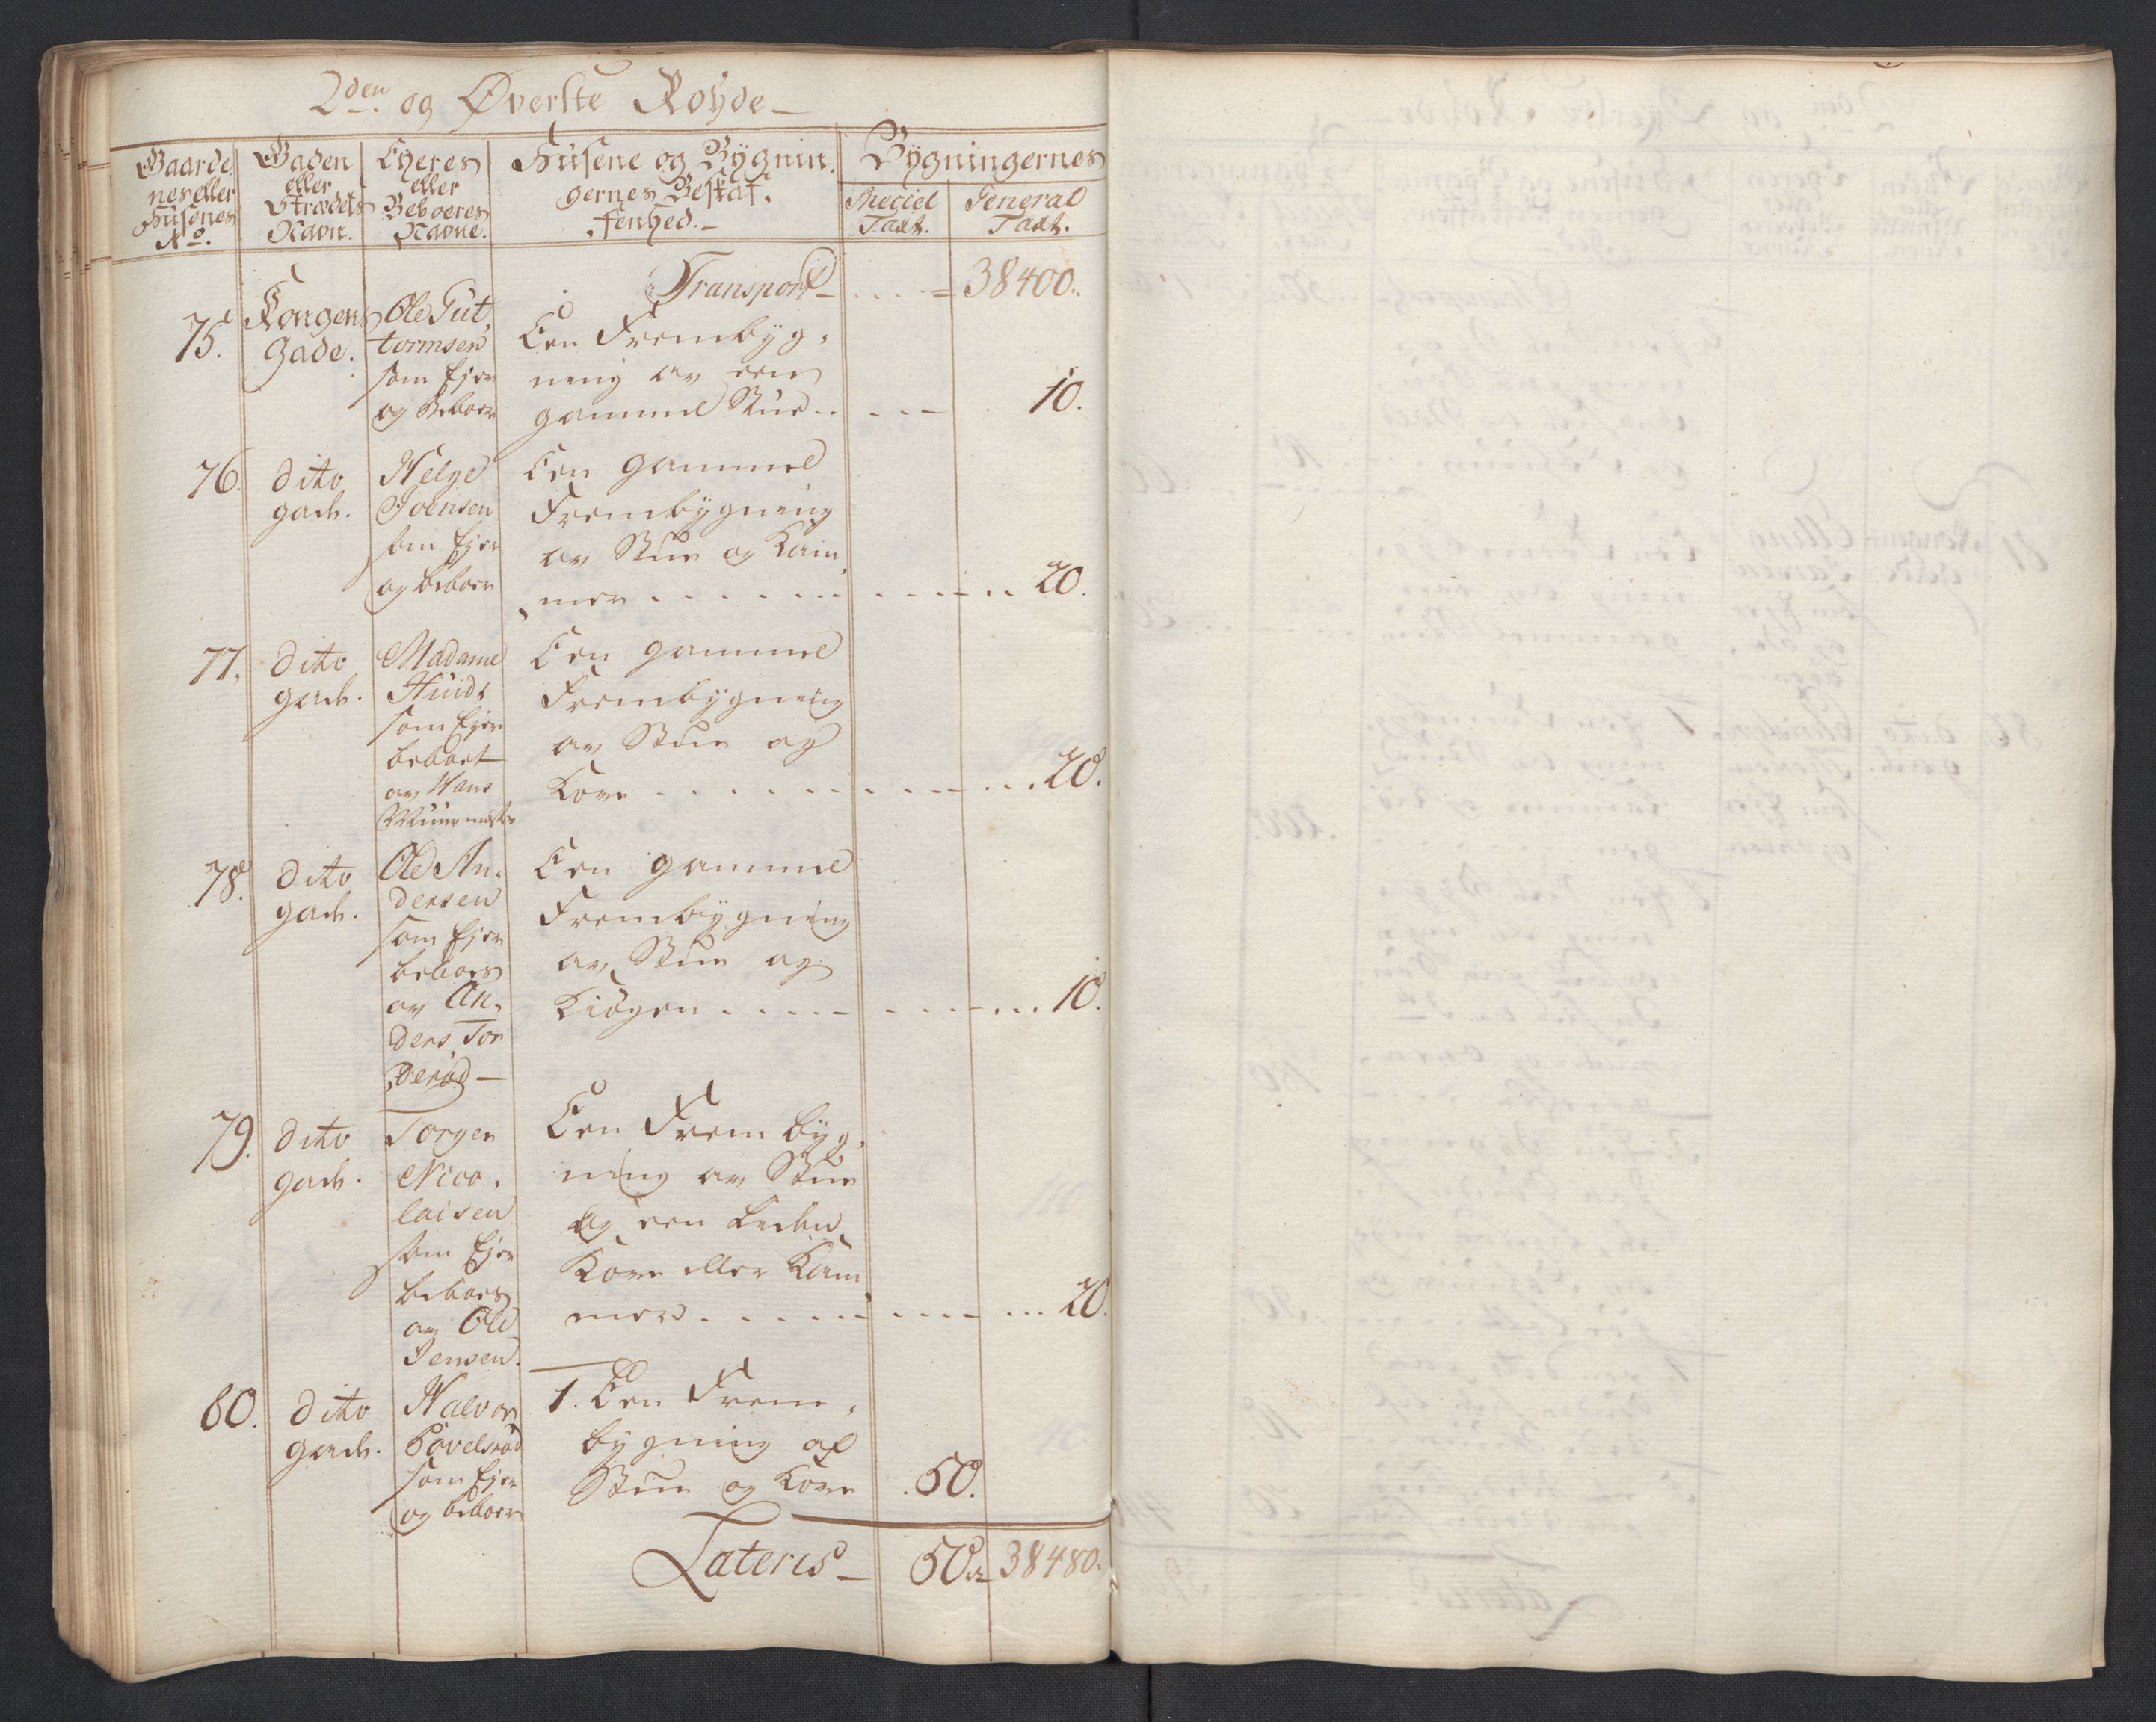 2den og Øverste Royde
Gaarde,
nes eller
Husenes
No.
Gaden
eller
Strædets
Navn.
Eyeres
eller
Beboeres
Navne.
Husene og Bygnin,
gernes Beskaf,
fenhed.
Bygningernes
Speciel
Taxt.
General
Taxt.
Transport - . . . = 38400.
75.
Kongens
Gade.
Ole Gut,
tormsen
som Ejer
og Beboer
Een Frembyg,
ning av een
gammel Stue . . . . . 10.
76.
dito
gade.
Helge
Joensen
som Ejer
og beboer
Een gammel
Frembygning
av Stue og Kam,
mer . . . . . . . . 20.
77.
dito
gade.
Madame
Huids
som Ejer
beboet
av Hans
Muurmester
Een gammel
Frembygning
av Stue og
Kove . . . . . . . . 20.
78.
dito
gade.
Ole An,
dersen
som Ejer
beboes
av An,
ders Tor
derød
Een gammel
Frembygning
av Stue og
Kiøgen . . . . . . . . 10.
79.
dito
gade.
Torger
Nico,
laisen
som Ejer
beboes
av Ole
Jensen.
Een Frembyg,
ning av Stue
og een liden
Kove eller Kam
mer . . . . . . . . 20.
80.
dito
gade.
Halvor
Povelsrød
som Ejer
og beboer
1. Een Frem,
bygning af
Stue og Kove . 50.
Lateris - 50. 38480.